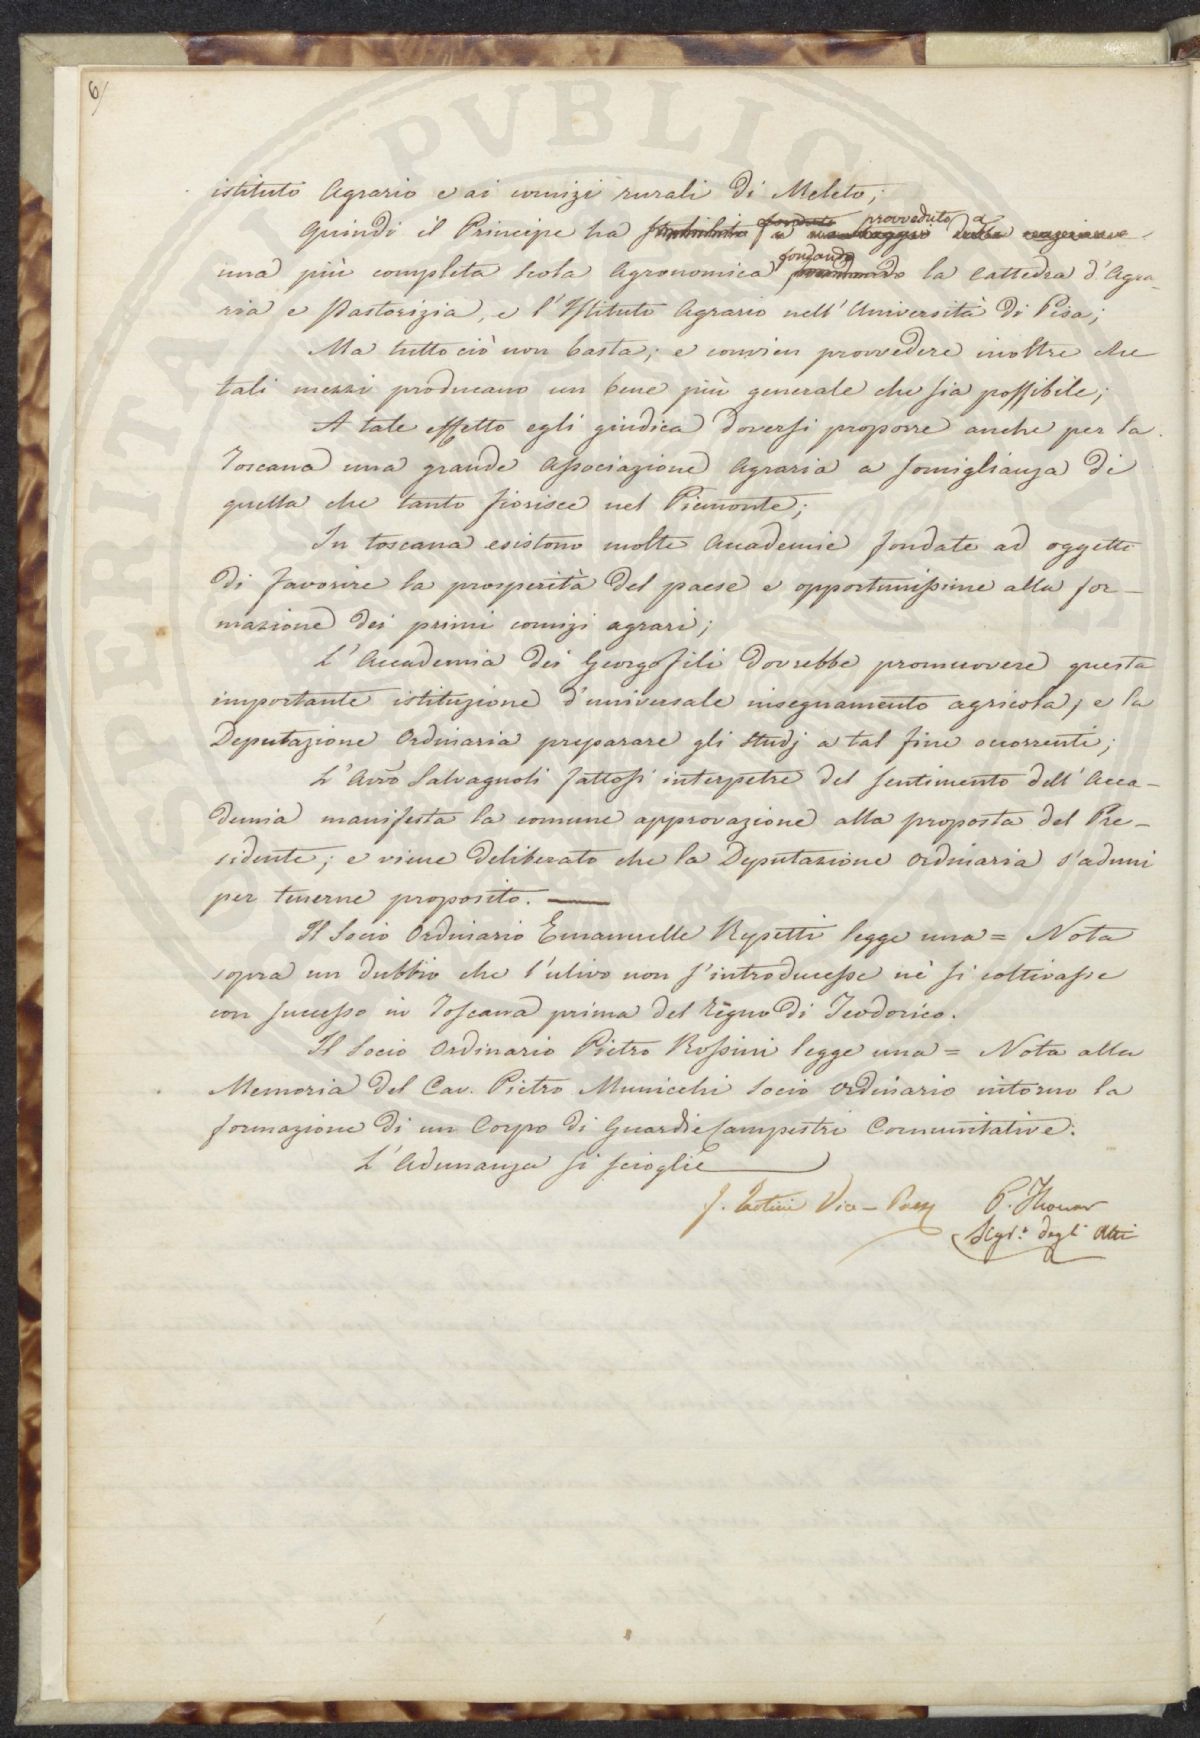 6/
istituto Agrario e ai comizi rurali di Meleto;
Quindi il Principe ha fondato provveduto a
una più completa scola Agronomica fondando la Cattedra d'Agra-
ria e Pastorizia, e l'Istituto Agrario nell'Università di Pisa;
Ma tutto ciò non basta; e convien provvedere inoltre che
tali mezzi producano un bene più generale che sia possibile;
A tale effetto egli giudica doversi proporre anche per la
Toscana una grande Associazione Agraria a somiglianza di
quella che tanto fiorisce nel Piemonte;
In toscana esistono molte Accademie fondate ad oggetto
di favorire la prosperità del paese e opportunissime alla for-
mazione dei primi comizi agrari;
L'Accademia dei Georgofili dovrebbe promuovere questa
importante istituzione d'universale insegnamento agricola; e la
Deputazione Ordinaria preparare gli studj a tal fine occorrenti;
L'Avvo Salvagnoli fattosi interpetre del sentimento dell'Acca-
demia manifesta la comune approvazione alla proposta del Pre-
sidente; e viene deliberato che la Deputazione ordinaria s'aduni
per tenerne proposito.
Il Socio Ordinario Emanuelle Repetti legge una = Nota
sopra un dubbio che l'ulivo non s'introducesse nè si coltivasse
con successo in Toscana prima del regno di Teodorico.
Il Socio Ordinario Pietro Rossini legge una = Nota alla
Memoria del Cav. Pietro Municchi Socio Ordinario intorno la
formazione di un Corpo di Guardie Campestri Comunitative.
L'Adunanza si scioglie
J. Tartini Vice-Pres P. Thouar
Segr.o degli Atti
PVBLIC
PROSPERITA